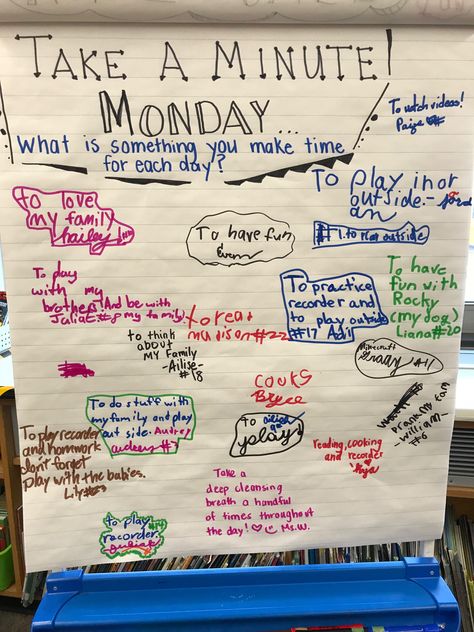 TAKE A MINUTE!
MONDAY...
What is something you make time
for each day?
To watch videos!
Paige
To love
my family
hailey
To have fun
Evern
To play in or
outside.-
#1 to play outside
To play
with my
brothers! And be with
Juliat #8 my family
to think
about
MY Family
-Ailise-
#18
to read
madison #22
To practice
recorder and
to play outside
#17 April
To have
fun with
Rocky
(my dog)
Liana #20
Minecraft
Grady #11
cours
Bryce
To do stuff with
my family and play
out side. Audrey
#7
to
play
To play recorder
and homework
dont forget
play with the babies.
Lily #23
Prank my fam
-william-
#6
reading, cooking
and recorder
Take a
deep cleansing
breath a handful
of times throughout
the day! ♡☺ Ms.W.
to play
recorder.